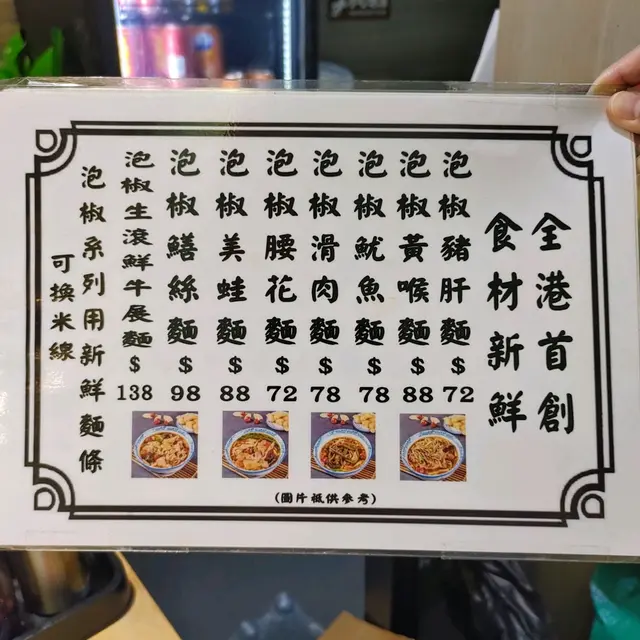 全港首創
食材新鮮
泡椒豬肝麵$72
泡椒黃喉麵$88
泡椒魷魚麵$78
泡椒滑肉麵$78
泡椒腰花麵$72
泡椒美蛙麵$88
泡椒鱔絲麵$98
泡椒生滾鮮牛展麵$138
泡椒系列用新鮮麵條
可換米線
(圖片祗供參考)